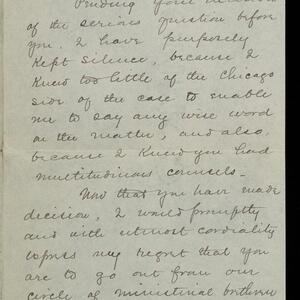 Pending your decision
of the serious question before
you, I have purposely
kept silence, because I
knew too little of the Chicago
side of the case to enable
me to say any wise word
on the matter, and also,
because I knew you had
multitudinous counsels -
Now that you have made
decision, I would promptly
and with utmost cordiality
express my regret that you
are to go out from our
circle of ministerial brethren